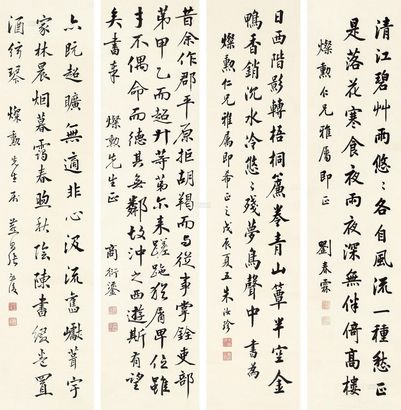 清江碧艸兩悠悠各自風流一種愁正
是落花寒食夜雨夜深無伴倚高樓
燦勳仁兄雅屬即正 劉春霖
日西階影轉梧桐簾捲青山簟半空金
鴨香銷沉水冷悠悠殘夢鳥聲中 書為
燦勳仁兄雅屬即希正之戊辰夏五朱汝珍
昔余作郡平原拒胡羯而與從事掌銓吏部
第甲乙而超升等第尔来蹉跎猶屑卑位雖
才不偶命而德其無鄰故沖之西遊斯有望
矣書奉 燦勳先生正 商衍鎏
亦既超曠無適非心汲流舊巘葺宇
家林晨烟暮靄春煦秋陰陳書綴卷置
酒絃琴 燦勳先生正 張啟後